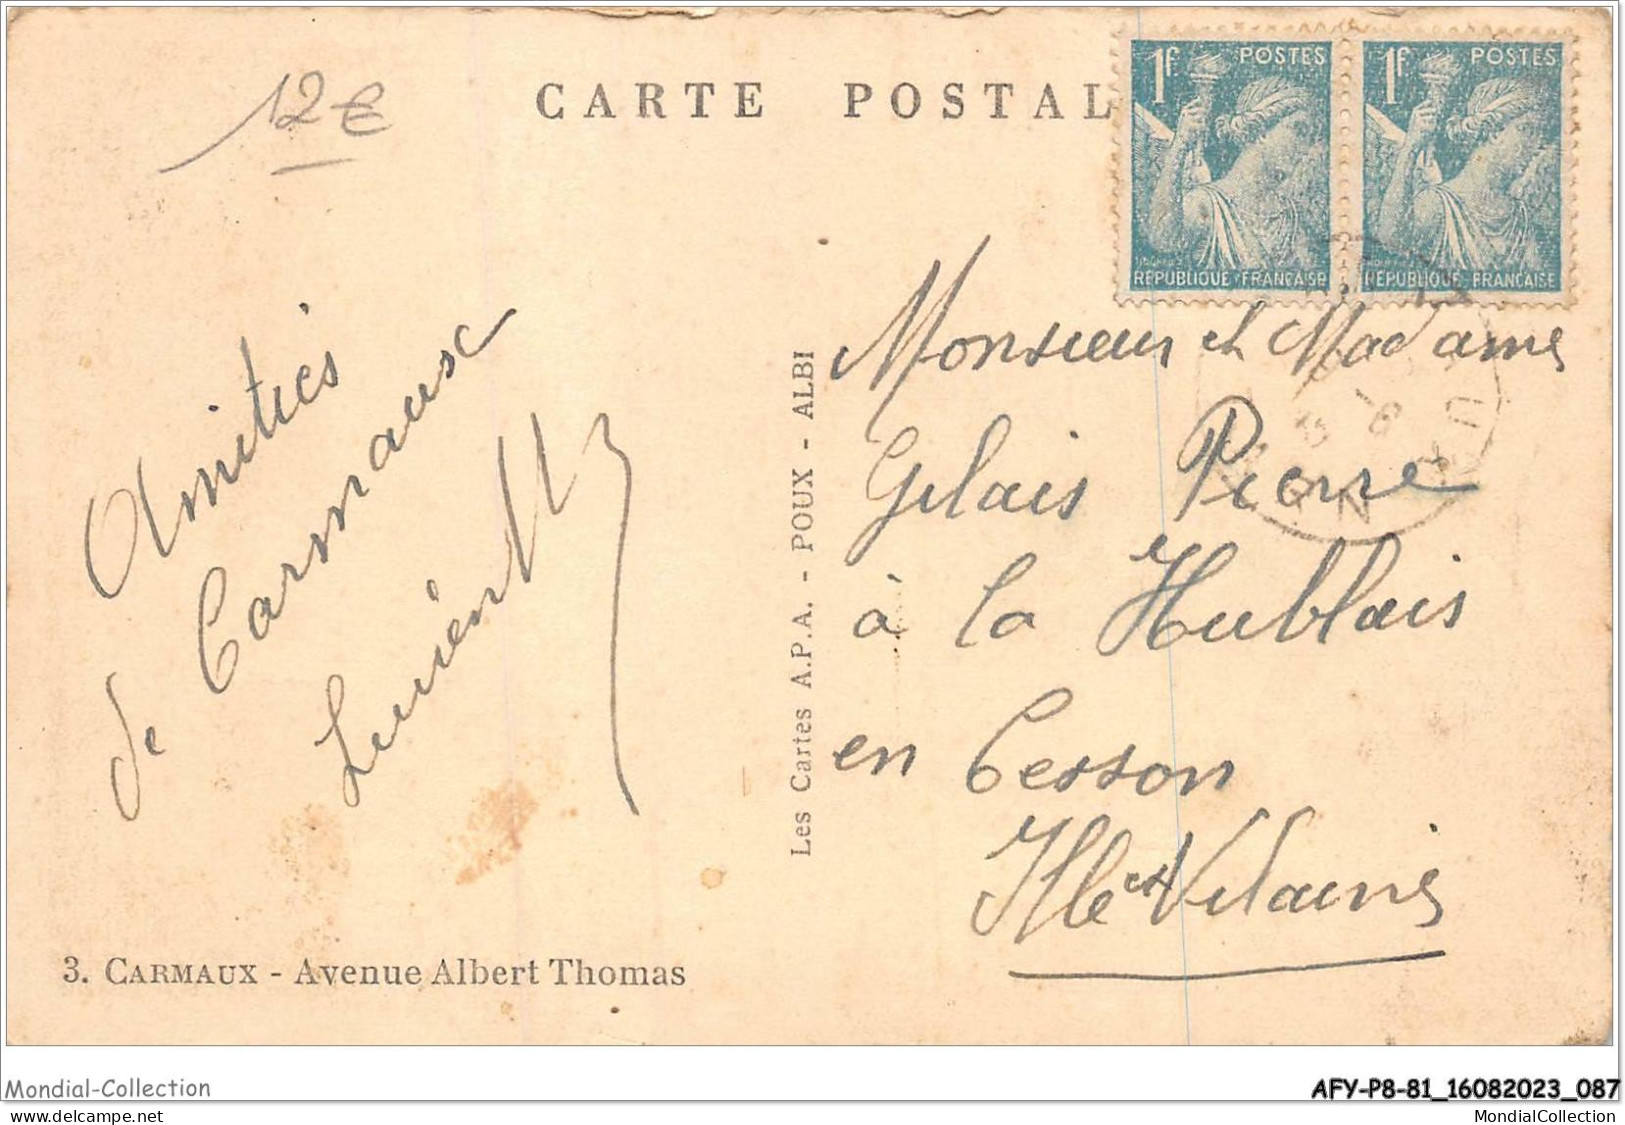 12€
CARTE POSTAL
1F. POSTES
REPUBLIQUE FRANÇAISE
1F. POSTES
REPUBLIQUE FRANÇAISE
Amitiés
de Carmausc
Lucien
Les Cartes A.P.A. - POUX - ALBI
Monsieur et Madame
Gelais Pierre
à la Hublais
en Cesson
Ille et Vilaine
3. CARMAUX - Avenue Albert Thomas
Mondial-Collection
AFY-P8-81_16082023_087
www.delcampe.net
MondialCollection